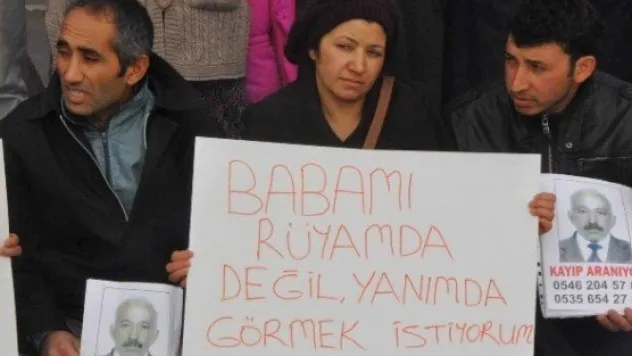 BABAMI
RÜYAMDA
DEĞİL, YANIMDA
GÖRMEK İSTİYORUM
KAYIP ARANIYO
0546 204 57
0535 654 27